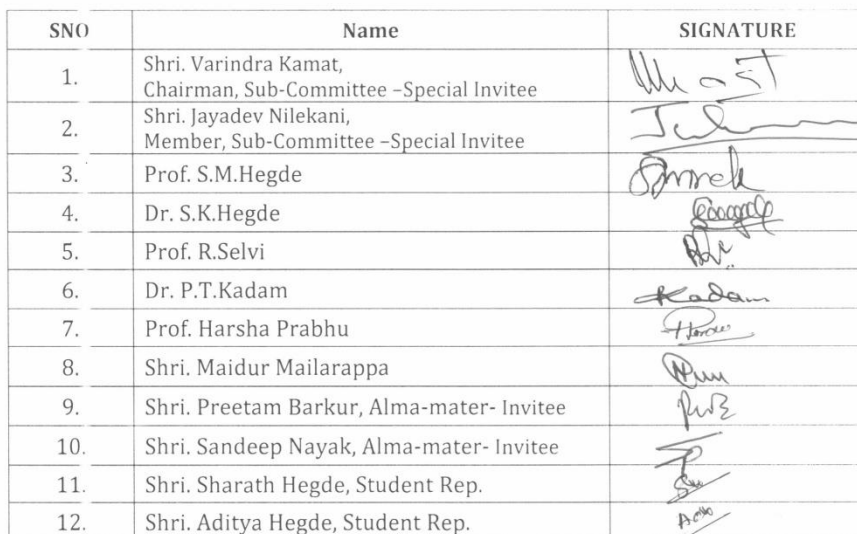 SNO Name SIGNATURE
1. Shri. Varindra Kamat,
Chairman, Sub-Committee –Special Invitee
2. Shri. Jayadev Nilekani,
Member, Sub-Committee –Special Invitee
3. Prof. S.M.Hegde
4. Dr. S.K.Hegde
5. Prof. R.Selvi
6. Dr. P.T.Kadam Kadam
7. Prof. Harsha Prabhu
8. Shri. Maidur Mailarappa
9. Shri. Preetam Barkur, Alma-mater- Invitee
10. Shri. Sandeep Nayak, Alma-mater- Invitee
11. Shri. Sharath Hegde, Student Rep.
12. Shri. Aditya Hegde, Student Rep.